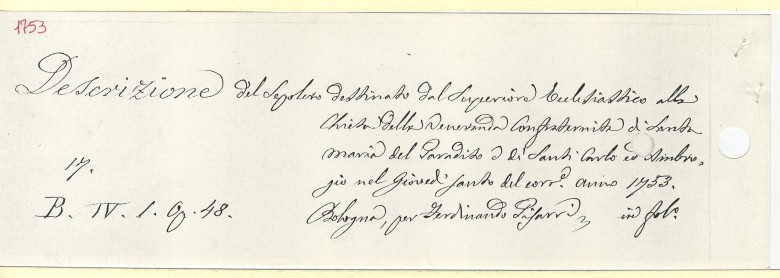 1753
Descrizione del Sepolcro destinato dal Superiore Eclesiastico alla
Chiesa della Veneranda Confraternita di Santa
Maria del Paradiso e di Santi Carlo ed Ambro-
gio nel Giovedì Santo del corr.e anno 1753.
17.
B. IV. 1. Op. 48. Bologna, per Ferdinando Pisarri, in fol.o